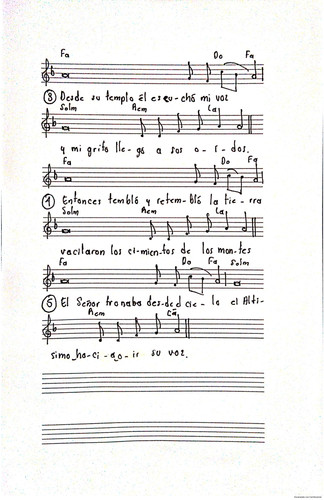 Fa Do Fa
③ Desde su templo él escu-chó mi voz
Solm Aem La
y mi grito lle-gó a sus o-ídos.
Fa Do Fa
Entonces tembló y retembló la tie-rra
Solm Aem La
vacilaron los ci-mien-tos de los mon-tes
Fa Do Fa Solm
⑤ El Señor tronaba des-de el cie-lo el Altí-
Aem
simo ha-cí-a o-ír su voz.